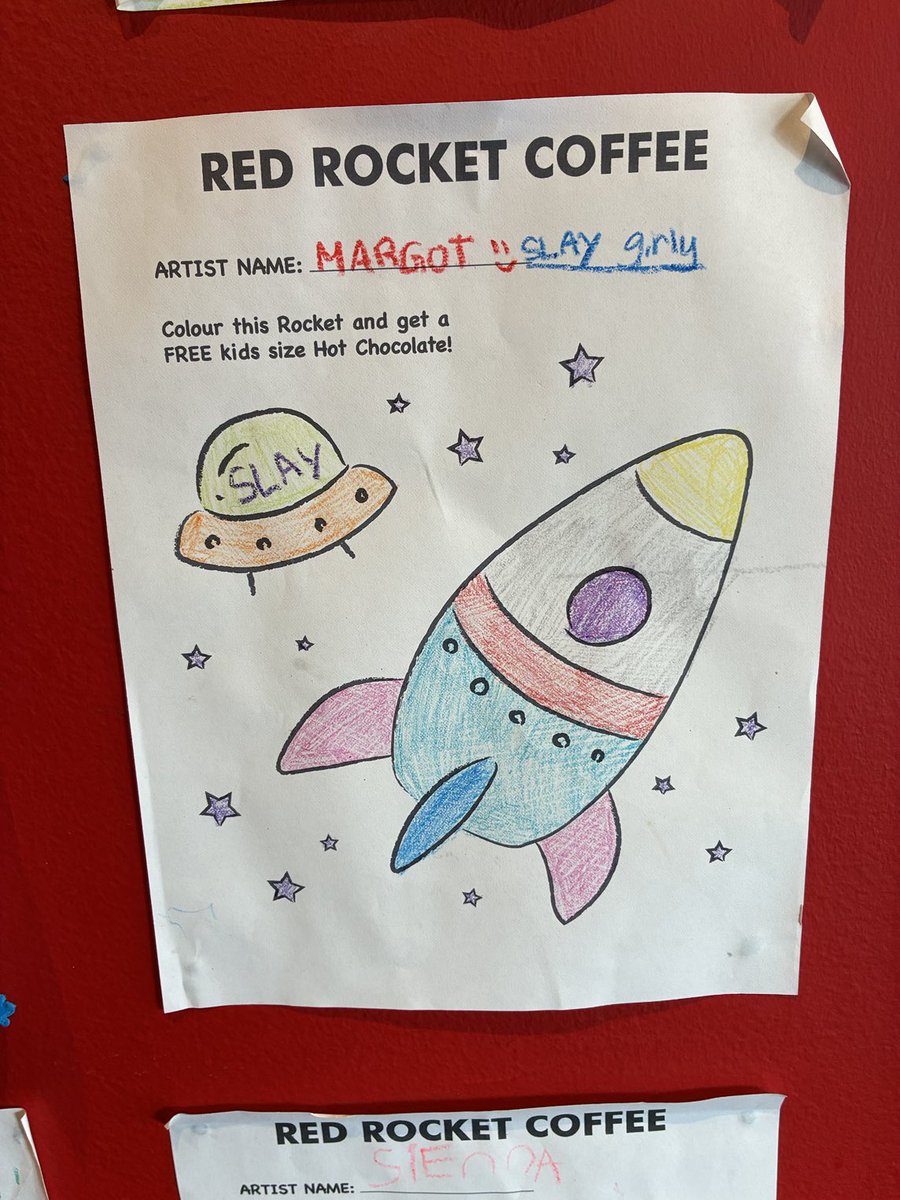 RED ROCKET COFFEE
ARTIST NAME: MARGOT :) SLAY girly
Colour this Rocket and get a
FREE kids size Hot Chocolate!
SLAY
RED ROCKET COFFEE
SIENNA
ARTIST NAME: